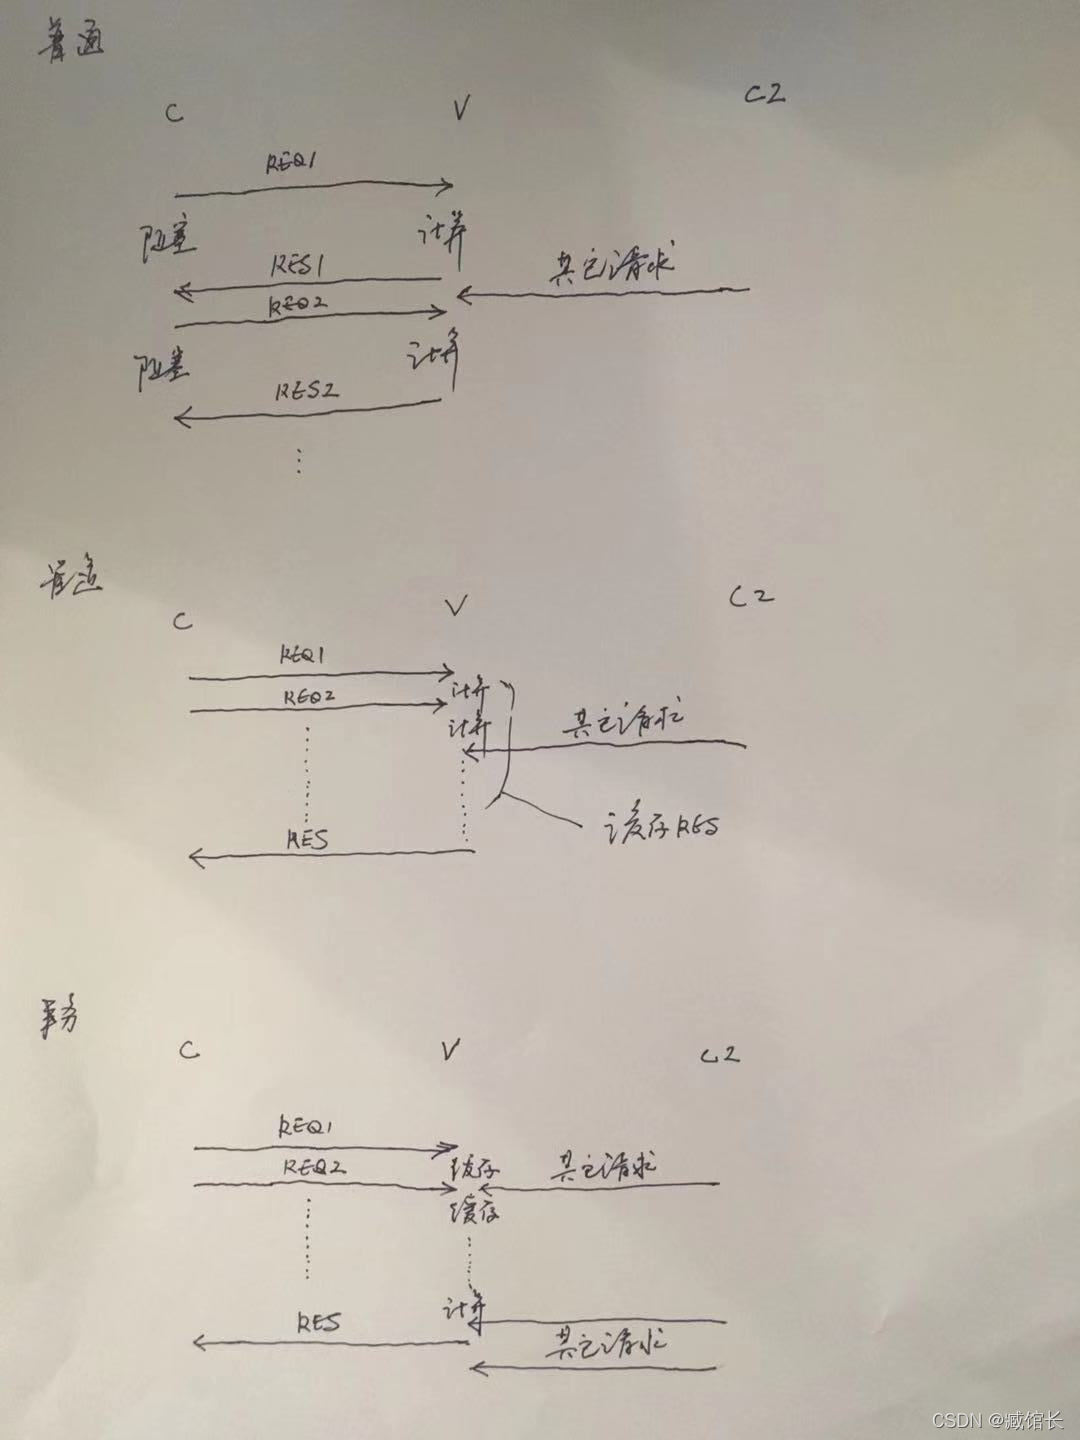 普通
C V C2
REQ1
阻塞 计算
RES1 其它请求
REQ2
阻塞 计算
RES2
管道
C V C2
REQ1
计算
REQ2
计算 其它请求
缓存RES
RES
事务
C V C2
REQ1
REQ2 缓存 其它请求
缓存
计算
RES
其它请求
CSDN @臧馆长